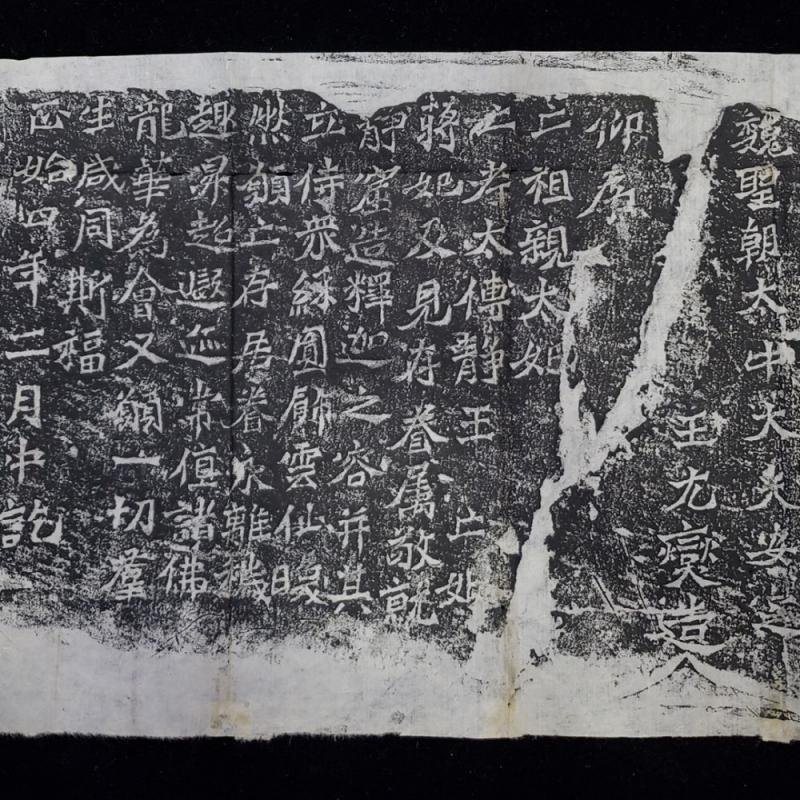 魏聖朝太中大夫安定
王元燮造
仰為
亡祖親太妃
亡考太傅静王亡妣
蔣妃及見存眷属敬就
静窟造釋迦之容并其
立侍衆綵圓飾雲仙映
然願亡存居眷永離穢
趣昇超遐迹常值諸佛
龍華為會又願一切羣
生咸同斯福
正始四年二月中訖